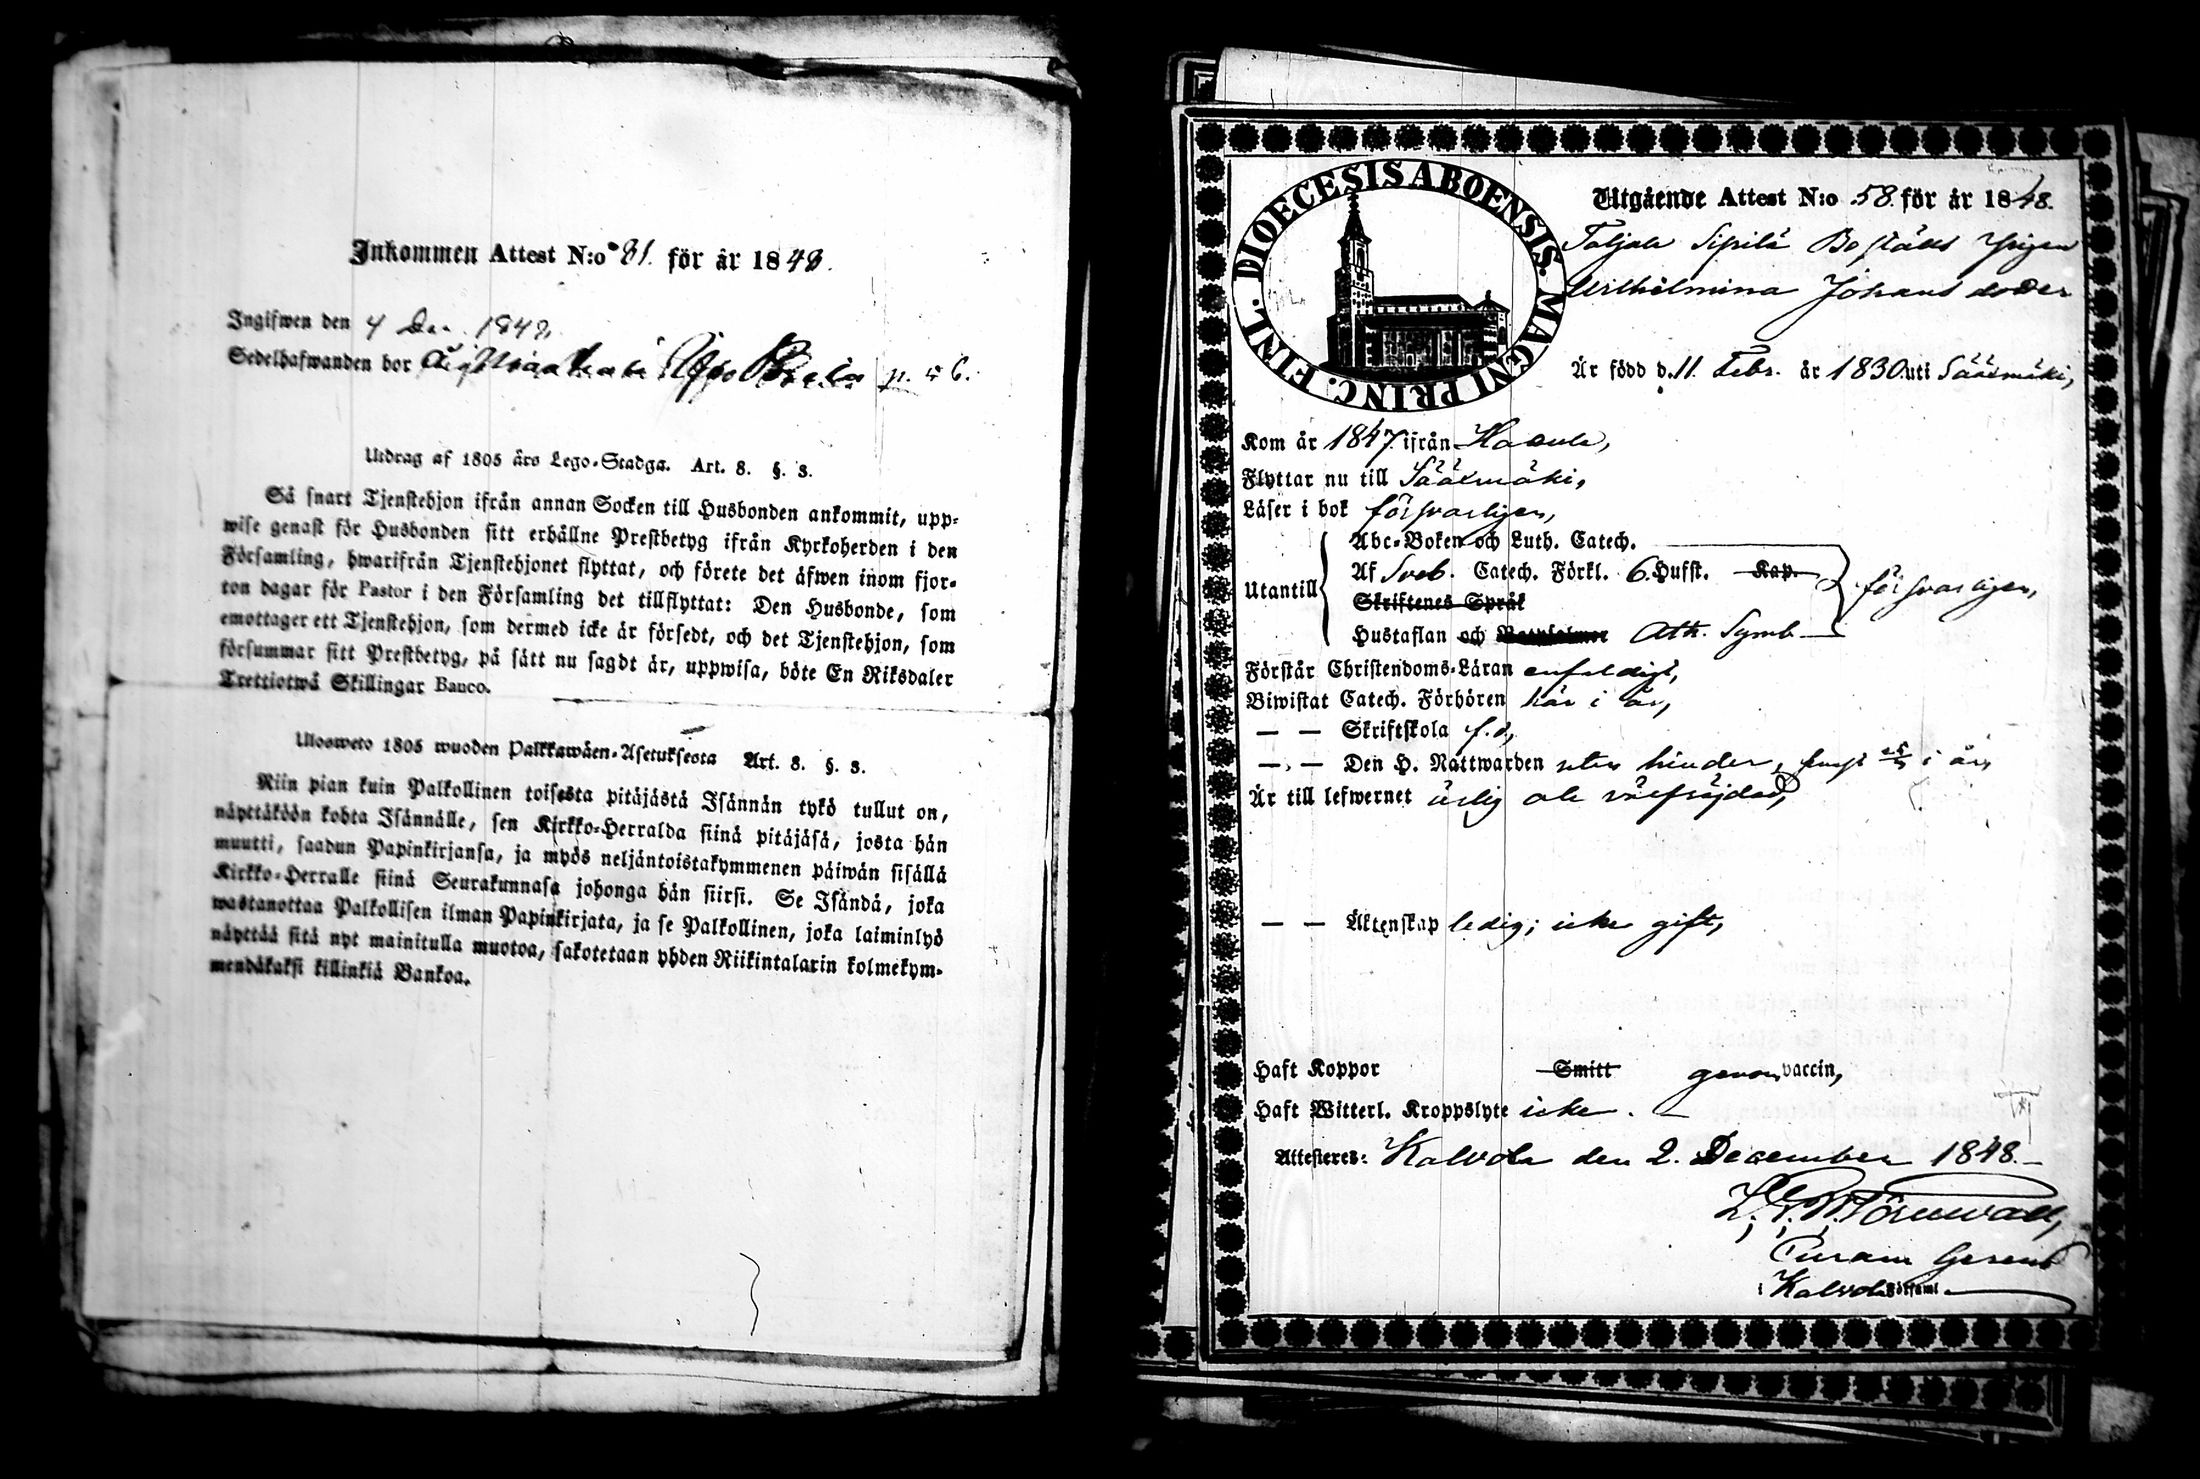 Inkommen Attest N:o 81. för år 1848.
Ingifwen den 4 Dec. 1848,
Sedelhafwanden bor p. 56.
Utdrag af 1805 års Lego-Stadga. Art. 8. §. 3.
Så snart Tjenstehjon ifrån annan Socken till Husbonden ankommit, upp-
wise genast för Husbonden sitt erhållne Prestbetyg ifrån Kyrkoherden i den
Församling, hwarifrån Tjenstehjonet flyttat, och förete det äfwen inom fjor-
ton dagar för Pastor i den Församling det tillflyttat: Den Husbonde, som
emottager ett Tjenstehjon, som dermed icke är försedt, och det Tjenstehjon, som
försummar sitt Prestbetyg, på sätt nu sagdt är, uppwisa, böte En Riksdaler
Trettiotwå Skillingar Banco.
Ulosweto 1805 wuoden Palkkawäen-Asetuksesta Art. 8. §. 3.
Niin pian kuin Palkollinen toisesta pitäjästä Isännän tykö tullut on,
näyttäköön kohta Isännälle, sen Kirkko-Herralda siinä pitäjäsä, josta hän
muutti, saadun Papinkirjansa, ja myös neljäntoistakymmenen päiwän sisällä
Kirkko-Herralle siinä Seurakunnasa johonga hän siirsi. Se Isändä, joka
wastanottaa Palkollisen ilman Papinkirjata, ja se Palkollinen, joka laiminlyö
näyttää sitä nyt mainitulla muotoa, sakotetaan yhden Riikintalarin kolmekym-
mendäkaksi killinkiä Bankoa.
DIOECESIS ABOENSIS. MAGNI PRINC. FINL.
Utgående Attest N:o 58. för år 1848.
Taljala Sipilä Boställes Pigan
Wilhelmina Johansdotter
Är född d. 11 Febr. år 1830. uti Sääxmäki,
Kom år 1847. ifrån
Flyttar nu till Sääxmäki,
Läser i bok försvarligen,
Abc-Boken och Luth. Catech.
Utantill Af Sveb. Catech. Förkl. 6. Hufst. Kap. försvarligen,
Skriftenes Språk
Hustaflan och Ath. Symb.
Förstår Christendoms-Läran enfaldigt,
Biwistat Catech. Förhören här i år,
— — Skriftskola f. d,
— „ — Den H. Nattwarden utan hinder, i år,
Är till lefwernet ärlig och välfräjdad,
— — Äktenskap ledig; icke gift,
Haft Koppor Smitt genom vaccin,
Haft Witterl. Kroppslyte icke.
Attesteres: Kalvola den 2. December 1848.
Törnwall,
Curam Gerens
i Kalvola Församl.